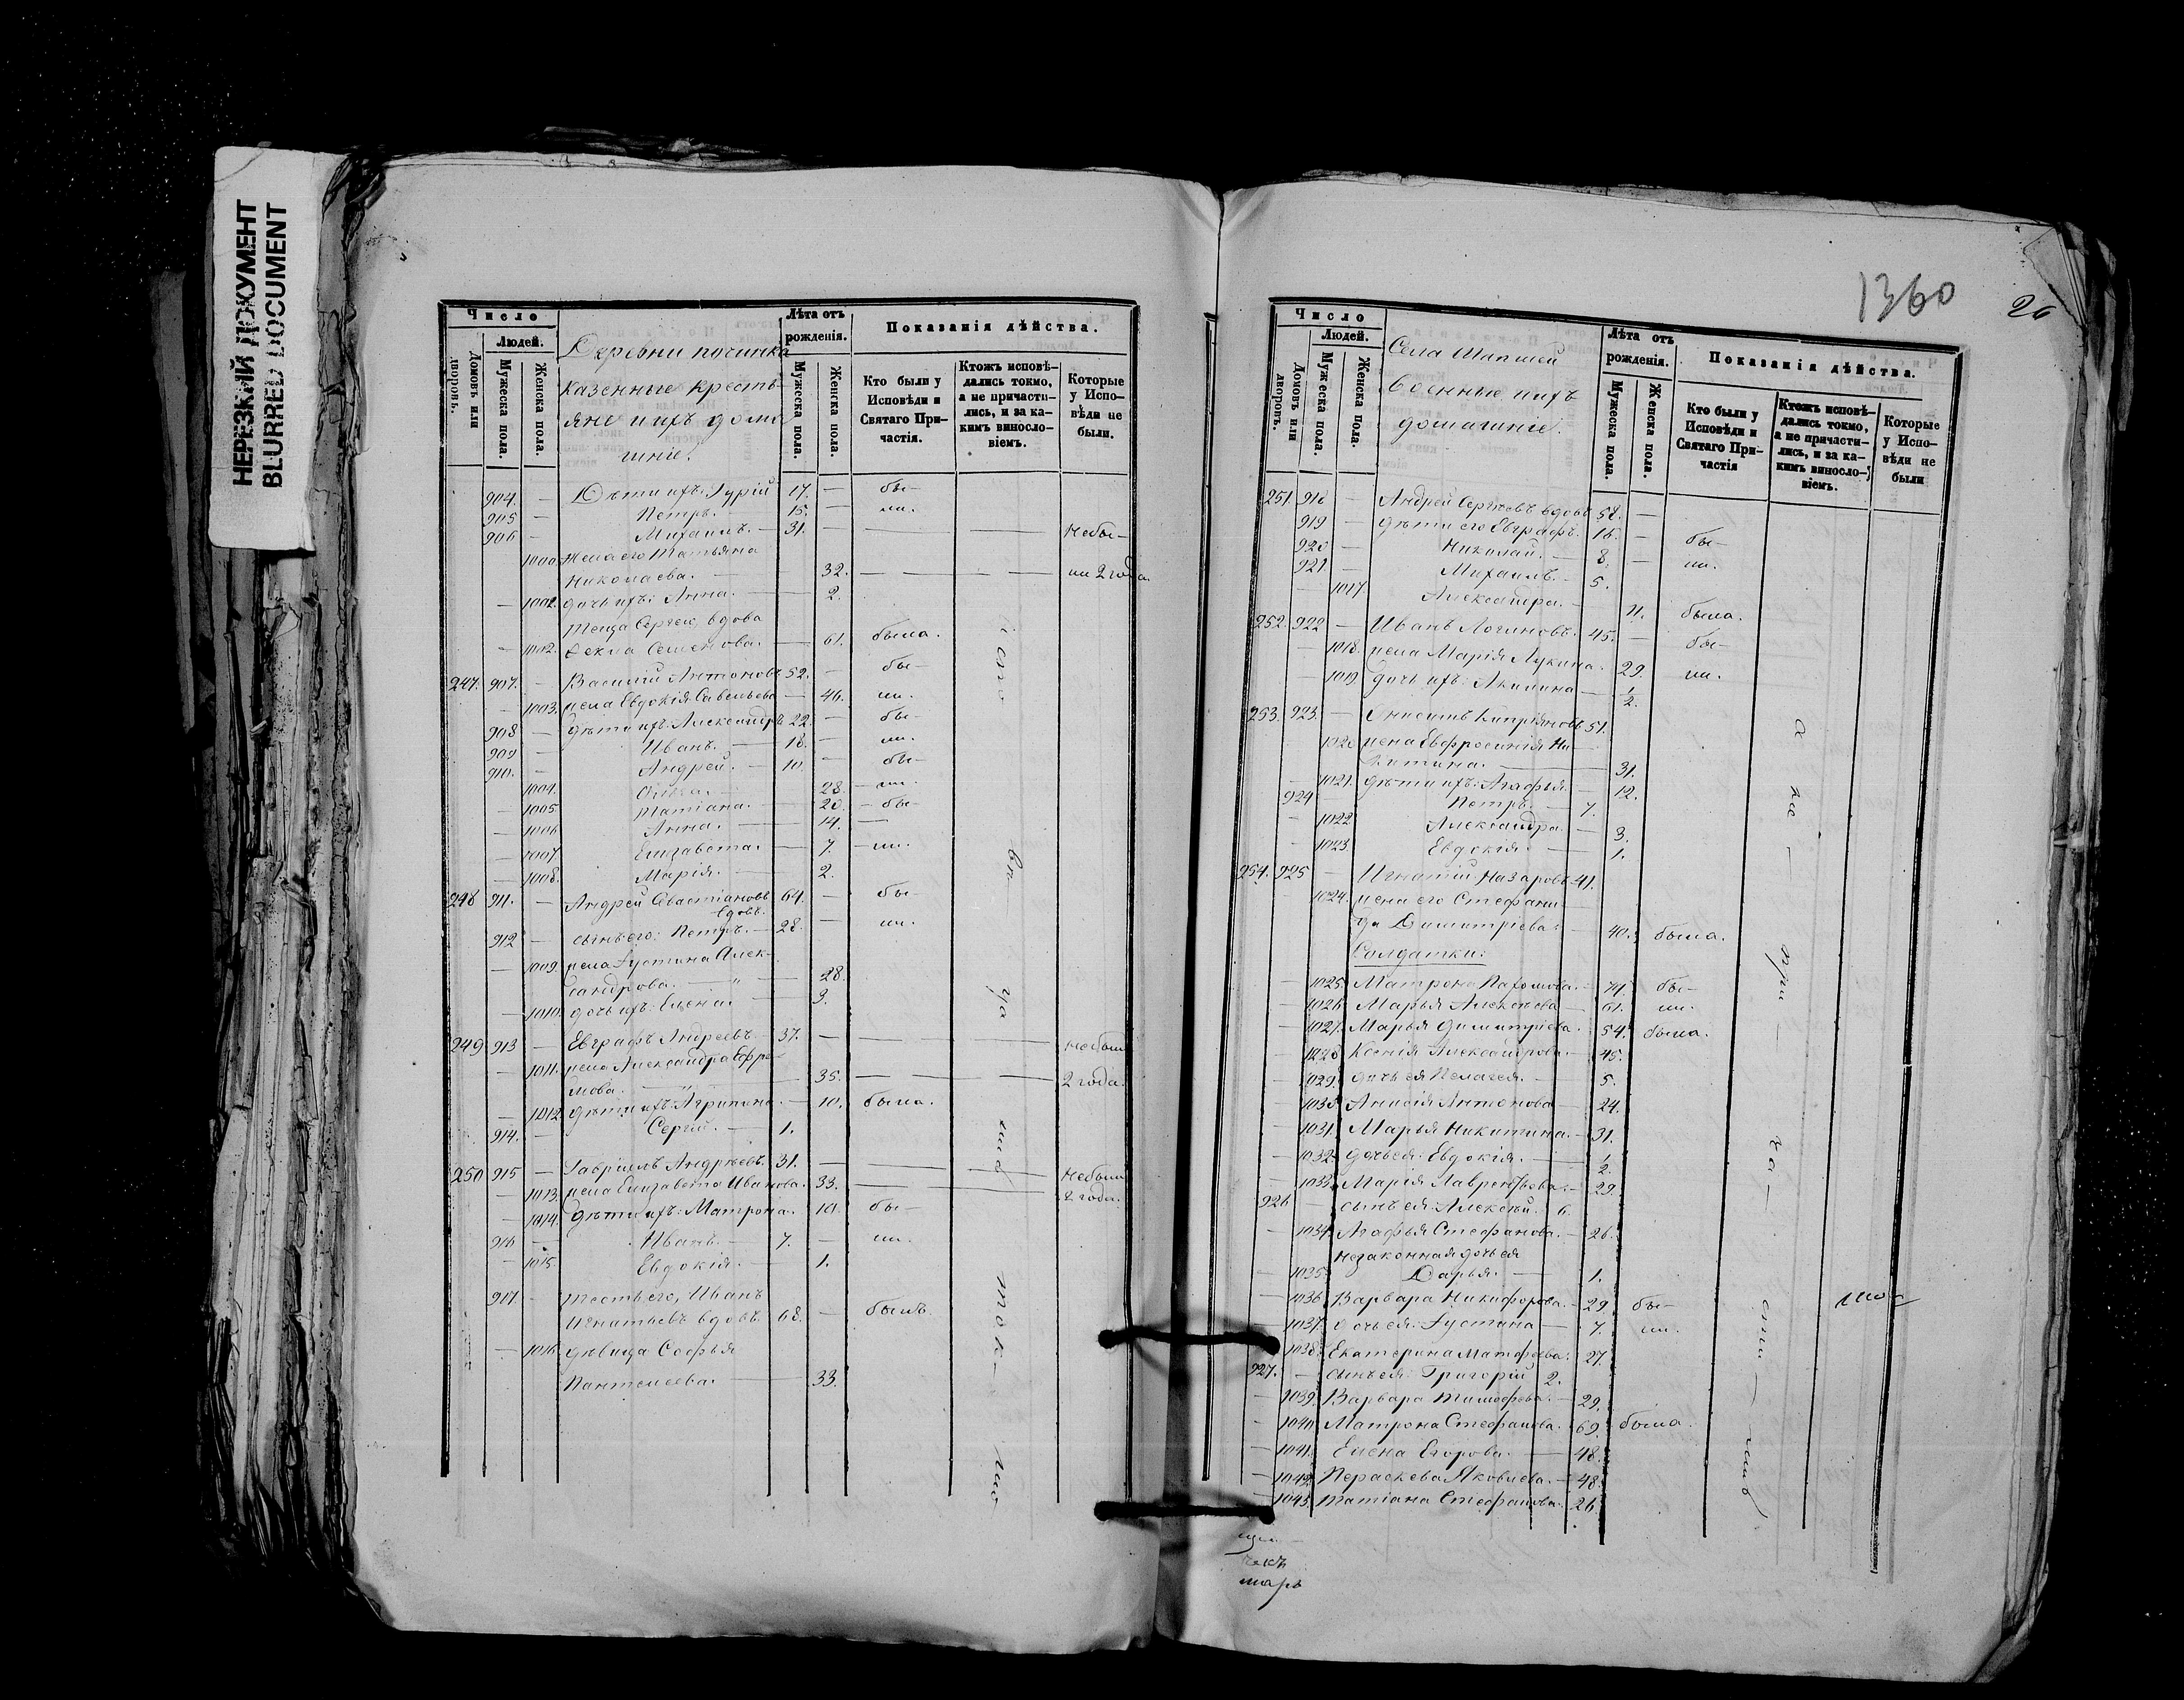 НЕРЕЗКИЙ ДОКУМЕНТ
BLURRED DOCUMENT
Число
Людей.
Домовъ или дворовъ.
Мужеска пола.
Женска пола.
Деревни починка
казенные кресть-
яне и ихъ дома
шніе.
Лѣта отъ рожденія.
Мужеска пола.
Женска пола.
Показанія дѣйства.
Кто были у Исповѣди и Святаго Причастія.
Ктожъ исповѣ-дались токмо, а не причасти-лись, и за ка-кимъ винослo-віемъ.
Которые у Испо-вѣди не были.
904. — Дѣти ихъ: Гурій 17. — бы-
905 — Петръ. 15. — ли.
906 — Михаилъ. — 31. — — Небы-
1000. Жена его Татьяна
Николаева. — 32. — — — ли 2 года.
— 1002. дочь ихъ: Анна. — 2.
Теща Сергея, вдова
— 1002. Фекла Семенова. — 61. была.
247. 907. — Василій Антоновъ 52. — бы-
— 1003. жена Евдокія Савельева — 46. ли.
908 — дѣти ихъ: Александръ 22. — бы-
909 — Иванъ. — 18. — ли.
910. — Андрей. — 10. — бы-
1004. 28. — ли.
— 1005. Татіана. — 20. — бы-
— 1006 Анна. — 14. —
— 1007. Елизавета. — 7. — ли.
— 1008. Марія. — 2.
248 911. — Андрей Савастіановъ 64. — бы-
вдовъ.
912 — сынъ его: Петръ. — 28. — ли.
— 1009. жена Густина Алек-
сандрова. — " — 28.
— 1010. дочь ихъ: Елена. — 3.
249 913 — Евграфъ Андреевъ. 37. — — — небыли
— 1011. жена Александра Ефре-
мова. — " — 35. — — — 2 года.
— 1012 дѣти ихъ: Агрипина. — 10. была.
914. — Сергій. — 1.
250 915 — Гавріилъ Андреевъ. 31. — — — Небыли
— 1013. жена Елизавета Иванова. 33. — — 2 года.
— 1014. дѣти ихъ: Матрона. — 10. бы-
916 — Иванъ. — 7. — ли.
— 1015. Евдокія. — 1.
917. — тесть его, Иванъ
Игнатьевъ вдовъ. 68. — былъ.
— 1016. дѣвица Софья
Пантелеева. — 33.
1360
26
Число
Людей.
Домовъ или дворовъ.
Мужеска пола.
Женска пола.
Села Шапшей
военные ихъ
домашніе.
Лѣта отъ рожденія.
Мужеска пола.
Женска пола.
Показанія дѣйства.
Кто были у Исповѣди и Святаго Причастія
Ктожъ исповѣ-дались токмо, а не причасти-лись, и за ка-кимъ винослo-віемъ.
Которые у Испо-вѣди не были
251. 918 — Андрей Сергѣевъ вдовъ 58. —
919 — дѣти его Евграфъ. 16. — бы-
920 — Николай. — 8. — ли.
921. — Михаилъ. — 5.
— 1017. Александра. — 11. была.
252. 922 — Иванъ Логиновъ. 45. — бы-
— 1018. жена Марія Лукина. 29. ли.
— 1019. дочь ихъ: Акилина — 1/2.
253. 923. — Кипріяновъ 51.
1020 жена Евфросинія Ни-
китина. — 31.
— 1021. дѣти ихъ: Агафья. — 12.
924 — Петръ. — 7.
— 1022. Александра. — 3.
— 1023. Евдокія. — 1.
254. 925 — Игнатій Назаровъ 41.
— 1024. жена его Стефани-
да Димитріева. — 40. была.
Солдатки:
— 1025. Матрона Пахомова. — 71. бы-
— 1026. Марья Алексѣева — 61. ли.
— 1027. Марья Димитріева. 54. была.
— 1028 Ксенія Александрова. — 45.
— 1029. дочь ея Пелагея. — 5.
— 1030. Анисія Антонова — 24.
— 1031. Марья Никитина. — 31.
— 1032. дочь ея: Евдокія. — 1/2.
— 1033. Марія Лаврентьева. — 29.
926 — сынъ ея: Алексѣй. 6.
— 1034. Агафья Стефанова. — 26.
незаконная дочь ея
— 1035. Дарья. — 1.
— 1036. Варвара Никифорова. — 29 бы-
— 1037. дочь ея: Густина — 7. ли.
— 1038. Екатерина Матфеева. 27.
927. — сынъ ея: Григорій 2.
— 1039. Варвара Тимофеева. — 29.
— 1040. Матрона Стефанова. 69. была.
— 1041. Елена Егорова. — 48.
— 1042. Параскева Яковлева. — 48.
— 1043. Татіана Стефанова. 26.